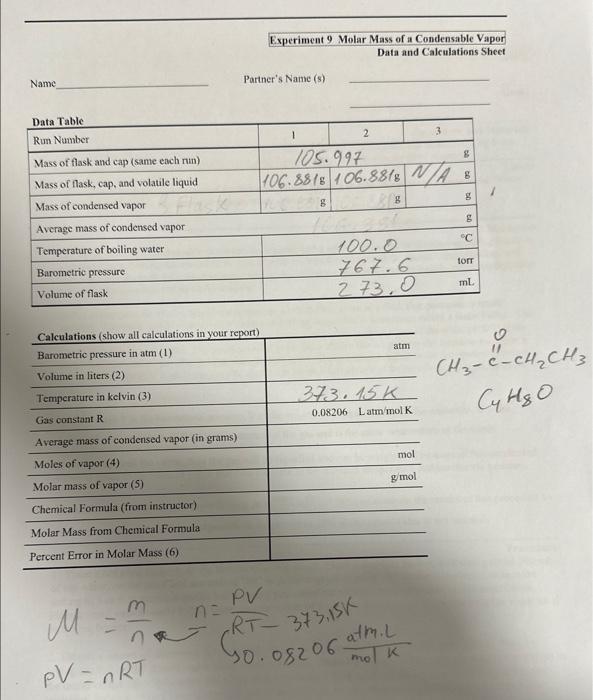 Experiment 9 Molar Mass of a Condensable Vapor
Data and Calculations Sheet
Name
Partner's Name (s)
Data Table
Run Number 1 2 3
Mass of flask and cap (same each run) 105.997 g
Mass of flask, cap, and volatile liquid 106.881g 106.881g N/A g
Mass of condensed vapor g g g
Average mass of condensed vapor g
Temperature of boiling water 100.0 °C
Barometric pressure 767.6 torr
Volume of flask 273.0 mL
Calculations (show all calculations in your report)
Barometric pressure in atm (1) atm
Volume in liters (2)
Temperature in kelvin (3) 373.15K
Gas constant R 0.08206 L atm/mol K
Average mass of condensed vapor (in grams)
Moles of vapor (4) mol
Molar mass of vapor (5) g/mol
Chemical Formula (from instructor)
Molar Mass from Chemical Formula
Percent Error in Molar Mass (6)
O
CH3-C-CH2CH3
C4H8O
M = m/n n = PV/RT - 373.15K
0.08206 atm.L/mol K
PV = nRT